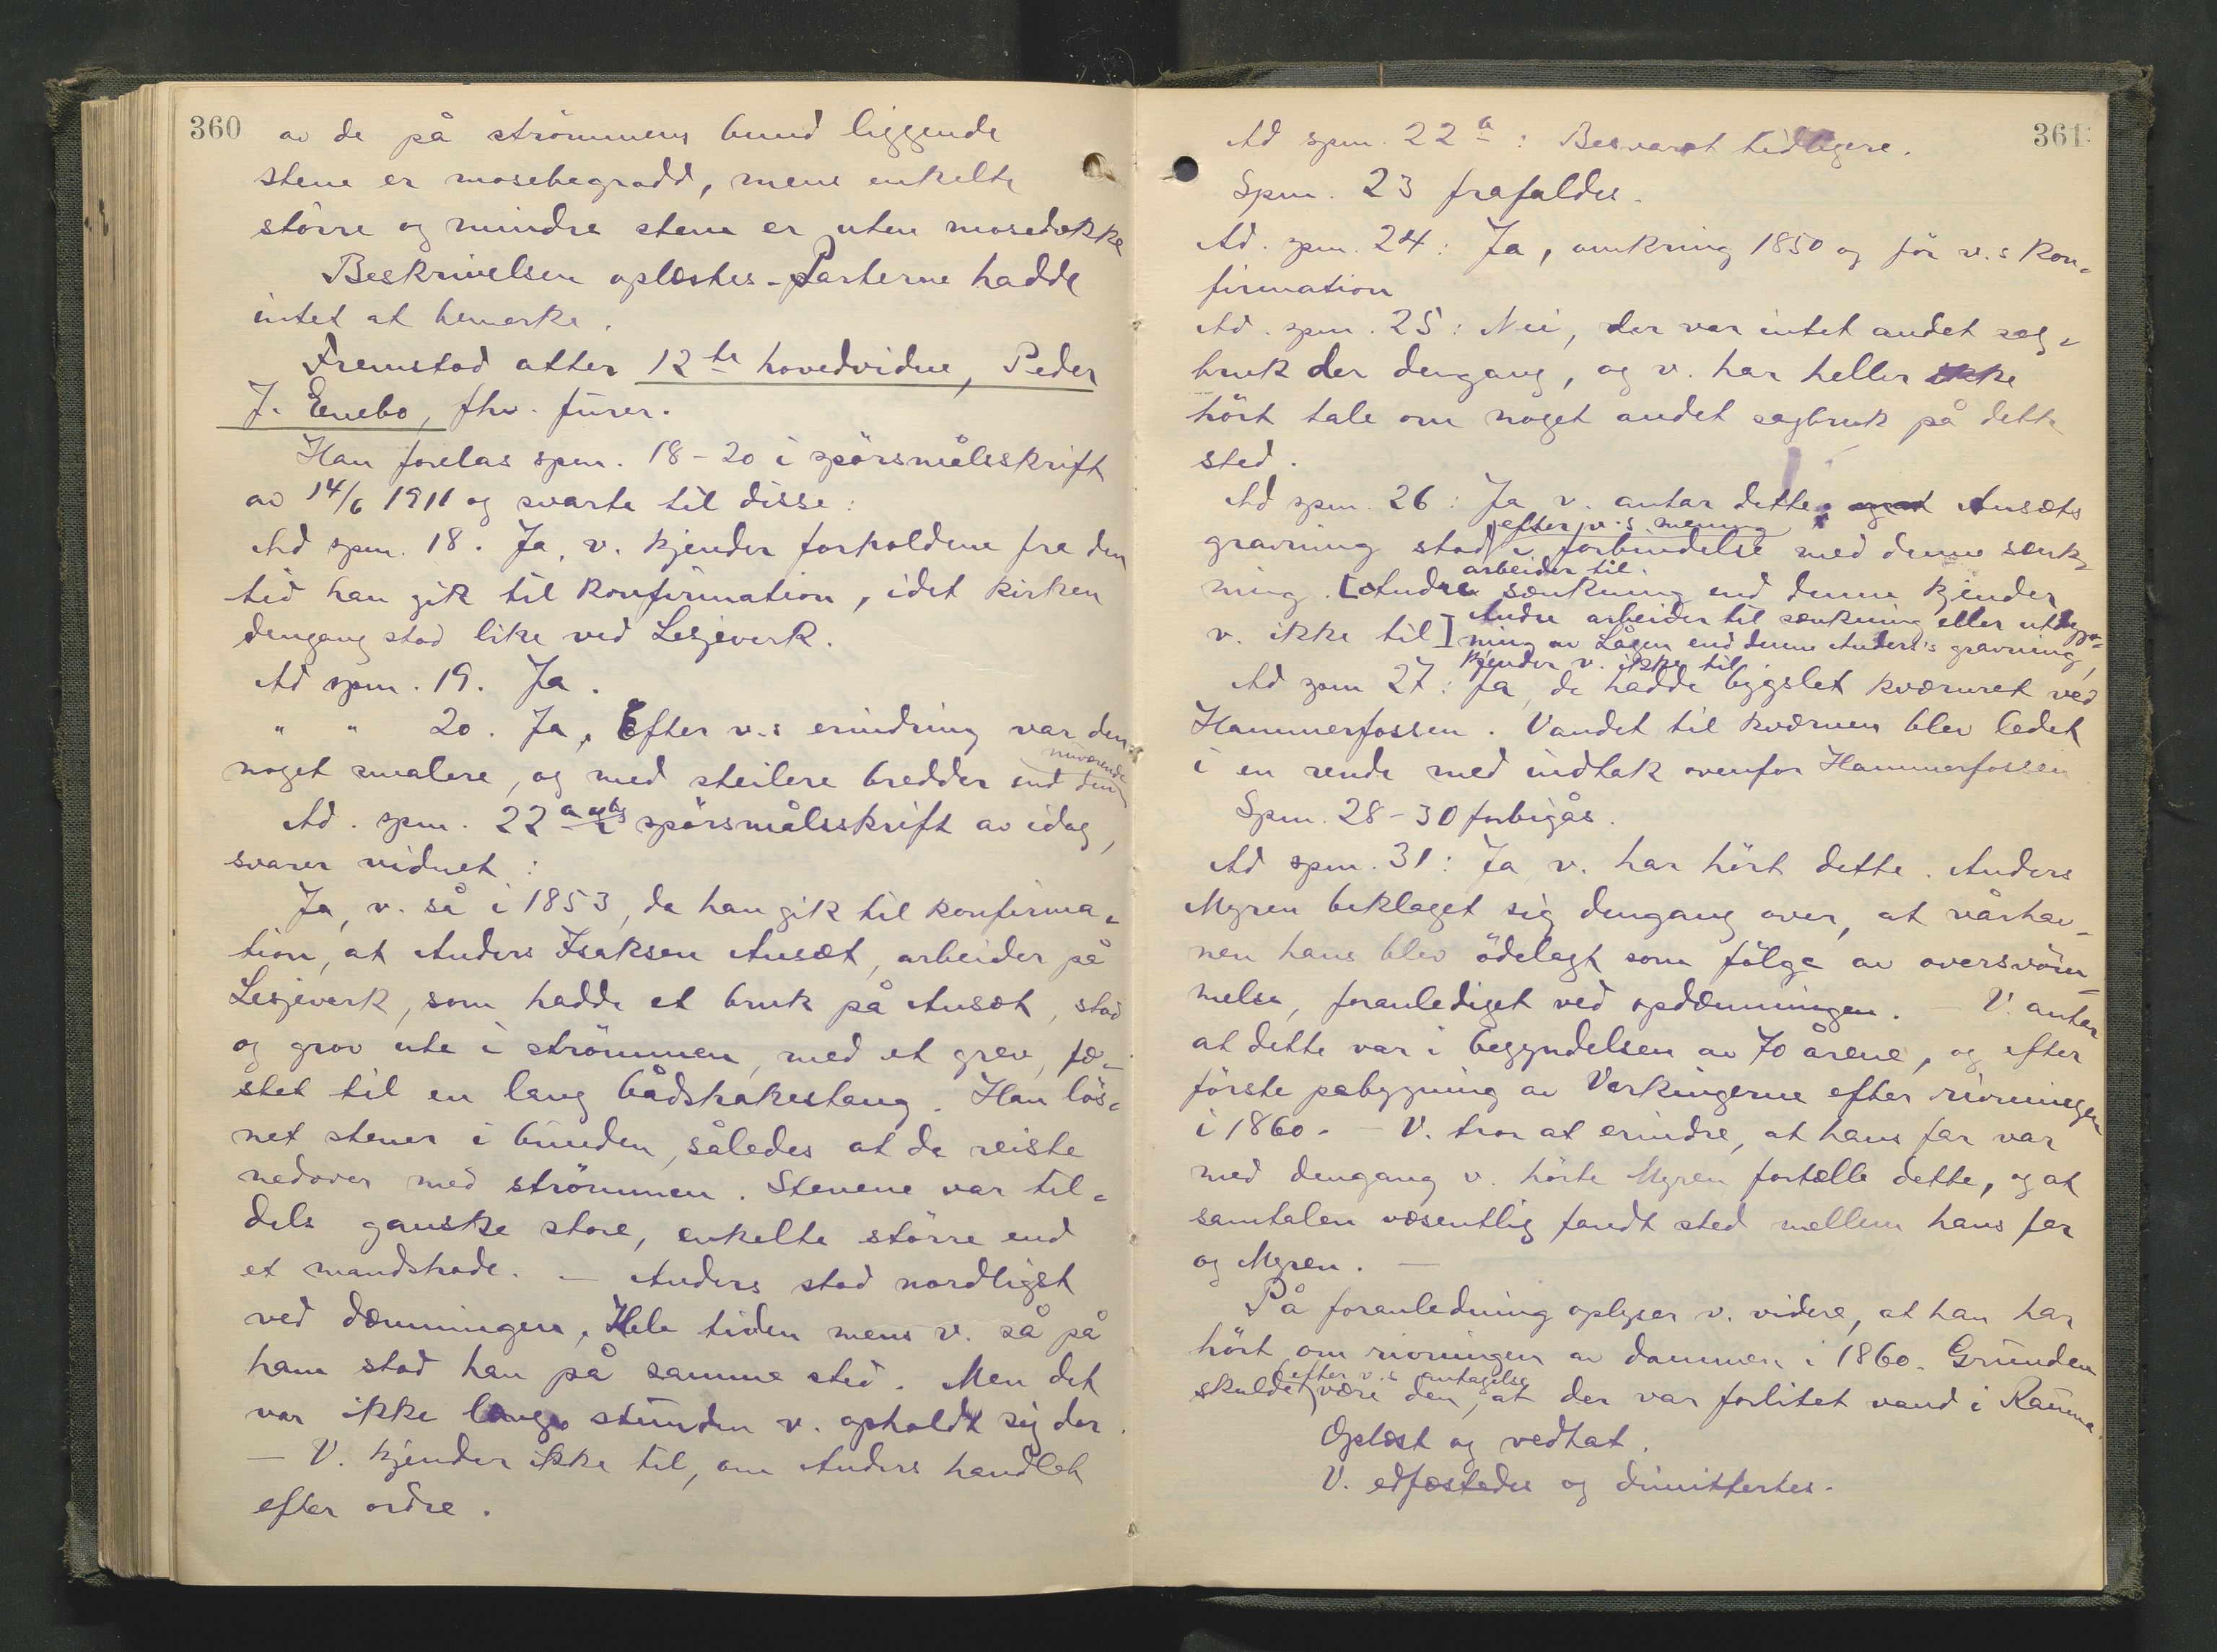 360
av de på strömmens bund liggende
stene er mosebegrodd, mens enkelte
större og mindre stene er uten mosedække
Beskrivelsen oplæstes. - Parterne hadde
intet at bemerke.
Fremstod atter 12te hovedvidne, Peder
J. Enebo, fhv. furer.
Han forelas spm. 18-20 i spörsmålsskrift
av 14/6 1911 og svarte til disse:
Ad spm. 18. Ja, v. kjender forholdene fra den
tid han gik til konfirmation, idet kirken
dengang stod like ved Lesjeverk.
Ad spm. 19. Ja.
" " 20. Ja. Efter v.s erindring var den
noget smalere, og med steilere bredder end den
nuværende
Ad. spm. 22 a spörsmålsskrift av idag,
svarer vidnet:
Ja, v. så i 1853, da han gik til konfirma-
tion, at Anders Isaksen Ansæt, arbeider på
Lesjeverk, som hadde et bruk på Ansæt, stod
og grov ute i strömmen, med et grev, fæ-
stet til en lang bådshakestang. Han lös-
net stener i bunden, således at de reiste
nedover med strömmen. Stenene var til-
dels ganske store, enkelte större end
et mandshode. - Anders stod nordligst
ved dæmningen. Hele tiden mens v. så på
ham stod han på samme sted. Men det
var ikke lange stunden v. opholdt sig der.
- V. kjender ikke til, om Anders handlet
efter ordre.
361
Ad spm. 22 a: Besvaret tidligere.
Spm. 23 frafaldes.
Ad. spm. 24: Ja, omkring 1850 og för v.s kon-
firmation
Ad. spm. 25: Nei, der var intet andet sag-
bruk der dengang, og v. har heller ikke
hört tale om noget andet sagbruk på dette
sted.
Ad spm. 26: Ja v. antar dette. Ansæts
efter v.s mening
gravning stod i forbindelse med denne sænk-
arbeider til
ning. [Andre sænkning end denne kjender
v. ikke til] Andre arbeider til sænkning eller utdyp-
ning av Lågen end denne Anders's gravning,
kjender v. ikke til
Ad spm 27: Ja, de hadde bygslet kværnret ved
Hammerfossen. Vandet til kværnen blev ledet
i en rende med indtak ovenfor Hammerfossen
Spm. 28-30 forbigås.
Ad spm. 31: Ja, v. har hört dette. Anders
Myren beklaget sig dengang over, at vårhav-
nen hans blev ödelagt som fölge av oversvöm-
melse, foranlediget ved opdæmningen. - V. antar
at dette var i begyndelsen av 70 årene, og efter
förste påbygning av Verkingerne efter rivningen
i 1860. - V. tror at erindre, at hans far var
med dengang v. hörte Myren fortælle dette, og at
samtalen væsentlig fandt sted mellem hans far
og Myren. -
På foranledning oplyser v. videre, at han har
hört om rivningen av dammen i 1860. Grunden
efter v.s antagelse
skulde være den, at der var forlitet vand i Rauma.
Oplæst og vedtat.
V. edfæstedes og dimittertes.